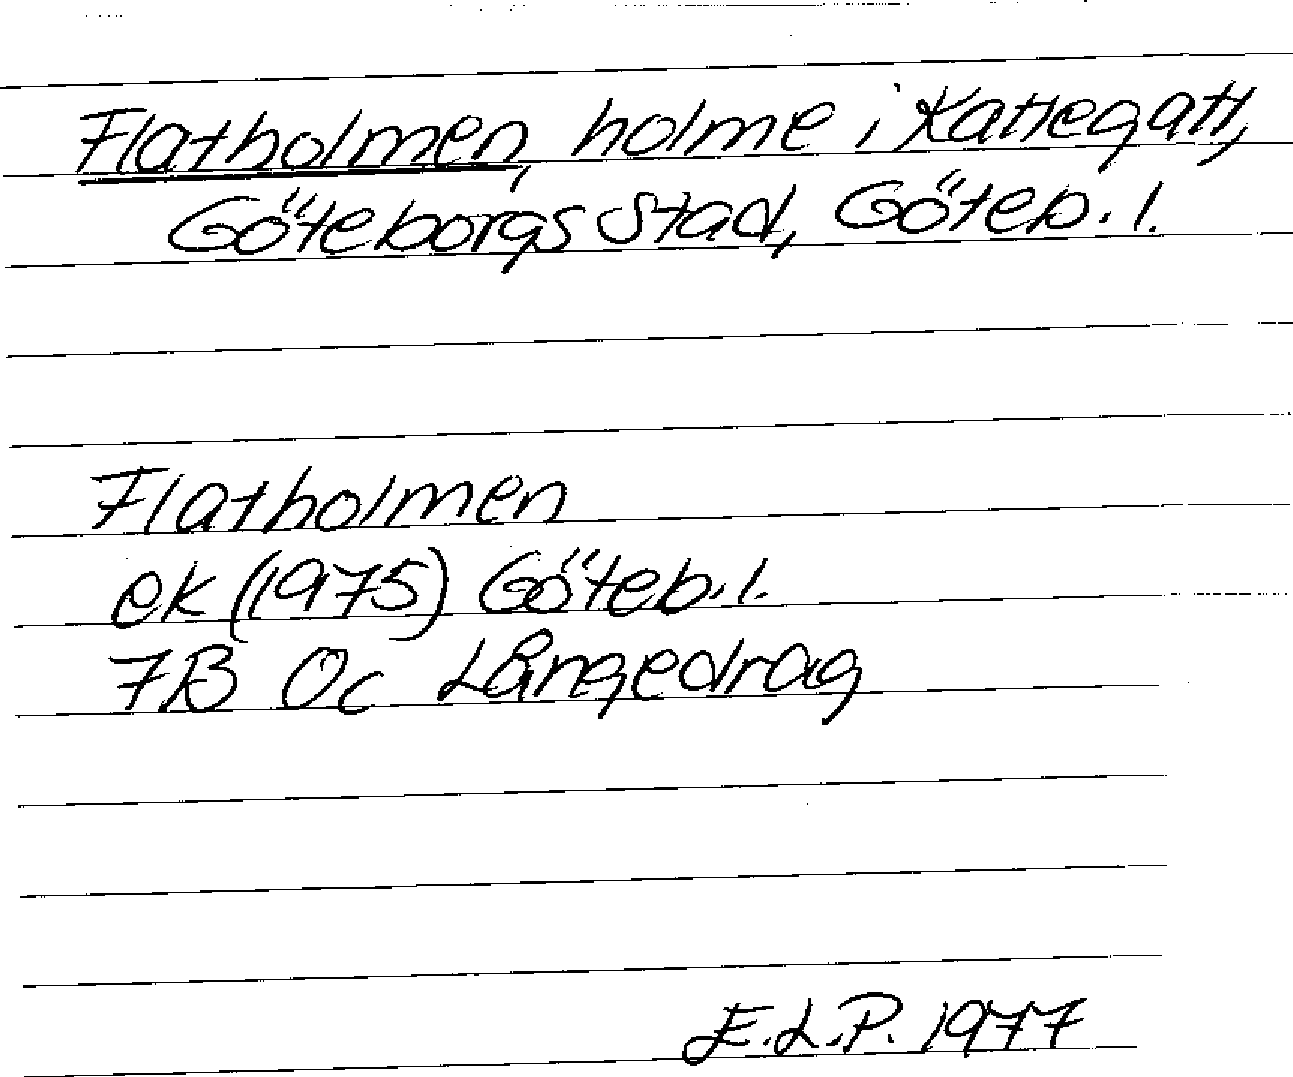 Flatholmen, holme i Kattegatt,
Göteborgs stad, Göteb. l.
Flatholmen
ek (1975) Göteb. l.
7B 0c Långedrag
E.L.P. 1977